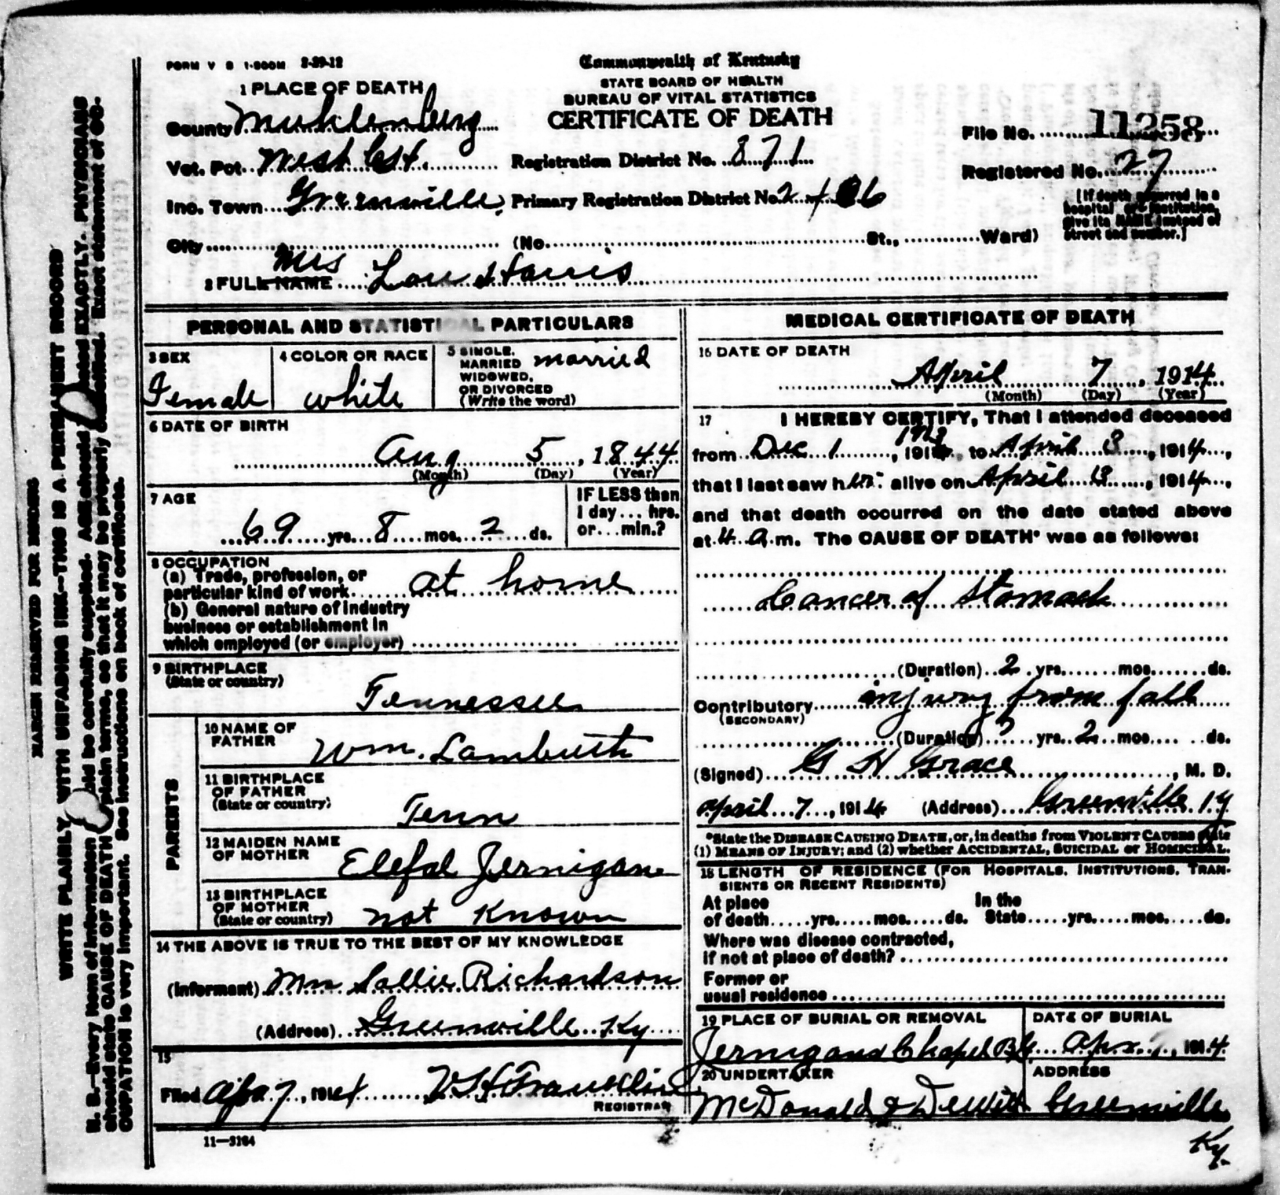 FORM V S 1-500M 2-29-12
Commonwealth of Kentucky
STATE BOARD OF HEALTH
BUREAU OF VITAL STATISTICS
CERTIFICATE OF DEATH
1 PLACE OF DEATH
County Muhlenberg
Vot. Pct. West Cst.
Inc. Town Greenville
City (No. St., Ward)
Registration District No. 871
Primary Registration District No. 2406
File No. 11258
Registered No. 27
[If death occurred in a hospital or institution, give its NAME instead of street and number.]
2 FULL NAME Mrs Lou Harris
PERSONAL AND STATISTICAL PARTICULARS
3 SEX Female
4 COLOR OR RACE white
5 SINGLE, MARRIED WIDOWED, OR DIVORCED (Write the word) married
6 DATE OF BIRTH
Aug 5, 1844
(Month) (Day) (Year)
7 AGE
69 yrs. 8 mos. 2 ds.
IF LESS than 1 day... hrs. or... min.?
8 OCCUPATION
(a) Trade, profession, or
particular kind of work at home
(b) General nature of industry
business or establishment in
which employed (or employer)
9 BIRTHPLACE
(State or country)
Tennessee
PARENTS
10 NAME OF FATHER Wm. Lambuth
11 BIRTHPLACE OF FATHER (State or country) Tenn
12 MAIDEN NAME OF MOTHER Jernigan
13 BIRTHPLACE OF MOTHER (State or country) not Known
14 THE ABOVE IS TRUE TO THE BEST OF MY KNOWLEDGE
(Informant) Mrs Sallie Richardson
(Address) Greenville Ky
15
Filed Apr 7, 1914 Franklin
REGISTRAR
11—3184
MEDICAL CERTIFICATE OF DEATH
16 DATE OF DEATH
April 7, 1914
(Month) (Day) (Year)
17 I HEREBY CERTIFY, That I attended deceased
from Dec 1, 1912, to April 3, 1914,
that I last saw her alive on April 3, 1914,
and that death occurred on the date stated above
at 4 a.m. The CAUSE OF DEATH* was as follows:
Cancer of Stomach
(Duration) 2 yrs. mos. ds.
Contributory injury from fall
(SECONDARY)
(Duration) yrs. 2 mos. ds.
(Signed) G H Grace, M. D.
April 7, 1914 (Address) Greenville Ky
*State the DISEASE CAUSING DEATH, or, in deaths from VIOLENT CAUSES state
(1) MEANS OF INJURY; and (2) whether ACCIDENTAL, SUICIDAL or HOMICIDAL.
18 LENGTH OF RESIDENCE (FOR HOSPITALS, INSTITUTIONS, TRAN-
SIENTS OR RECENT RESIDENTS)
At place of death yrs. mos. ds. In the State yrs. mos. ds.
Where was disease contracted,
if not at place of death?
Former or
usual residence
19 PLACE OF BURIAL OR REMOVAL
Jernigans Chapel
DATE OF BURIAL
Apr 1914
20 UNDERTAKER
McDonald & Dewitt
ADDRESS
Greenville
Ky.
MARGIN RESERVED FOR BINDING
WRITE PLAINLY, WITH UNFADING INK—THIS IS A PERMANENT RECORD
N. B.—Every item of information should be carefully supplied. AGE should be stated EXACTLY. PHYSICIANS
should state CAUSE OF DEATH in plain terms, so that it may be properly classified. Exact statement of OC-
CUPATION is very important. See instructions on back of certificate.